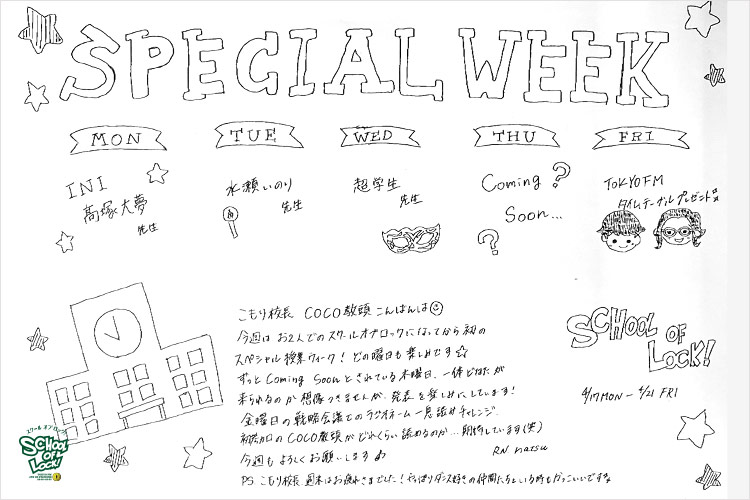 SPECIAL WEEK
MON
TUE
WED
THU
FRI
INI
髙塚大夢
先生
水瀬いのり
先生
超学生
先生
Coming ?
Soon...
?
TOKYO FM
タイムテーブルプレゼント
こもり校長 COCO教頭 こんばんは
今週は お2人でのスクールオブロックになってから初の
スペシャル授業ウィーク! どの曜日も楽しみです☆
ずっとComing Soonとされている木曜日、一体どなたが
来られるのか想像つきませんが、発表を楽しみにしています!
金曜日の戦略会議でのラジオネーム一息読みチャレンジ
初参加のCOCO教頭がどれくらい読めるのか...期待しています(笑)
今週も よろしくお願いします♪
RN natsu
PS こもり校長 週末はお疲れさまでした! やっぱりダンス好きの仲間たちといる時もかっこいいですね
SCHOOL OF LOCK!
4/17 MON - 4/21 FRI
スクール オブ ロック!
SCHOOL OF LOCK!